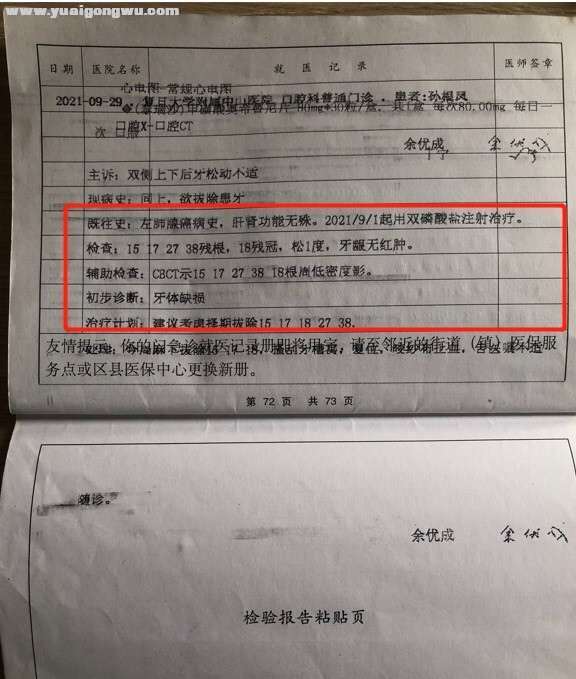 www.yuaigongwu.com
日期 医院名称 就 医 记 录 医师签章
心电图 常规心电图
2021-09-29 复旦大学附属中山医院 口腔科普通门诊 · 患者:孙根凤
80mg*30粒/盒 每次80.00mg 每日一
次 口服
口腔X-口腔CT
余优成 余优成
主诉：双侧上下后牙松动不适
现病史：同上，欲拔除患牙
既往史：左肺腺癌病史，肝肾功能无殊。2021/9/1起用双磷酸盐注射治疗。
检查：15 17 27 38残根，18残冠，松1度，牙龈无红肿。
辅助检查：CBCT示15 17 27 38 18根周低密度影。
初步诊断：牙体缺损
治疗计划：建议考虑择期拔除15 17 18 27 38.
友情提示：你的门急诊就医记录册即将用完，请至邻近的街道（镇）医保服
务点或区县医保中心更换新册。
第 72 页 共 73 页
随诊。
余优成 余优成
检验报告粘贴页